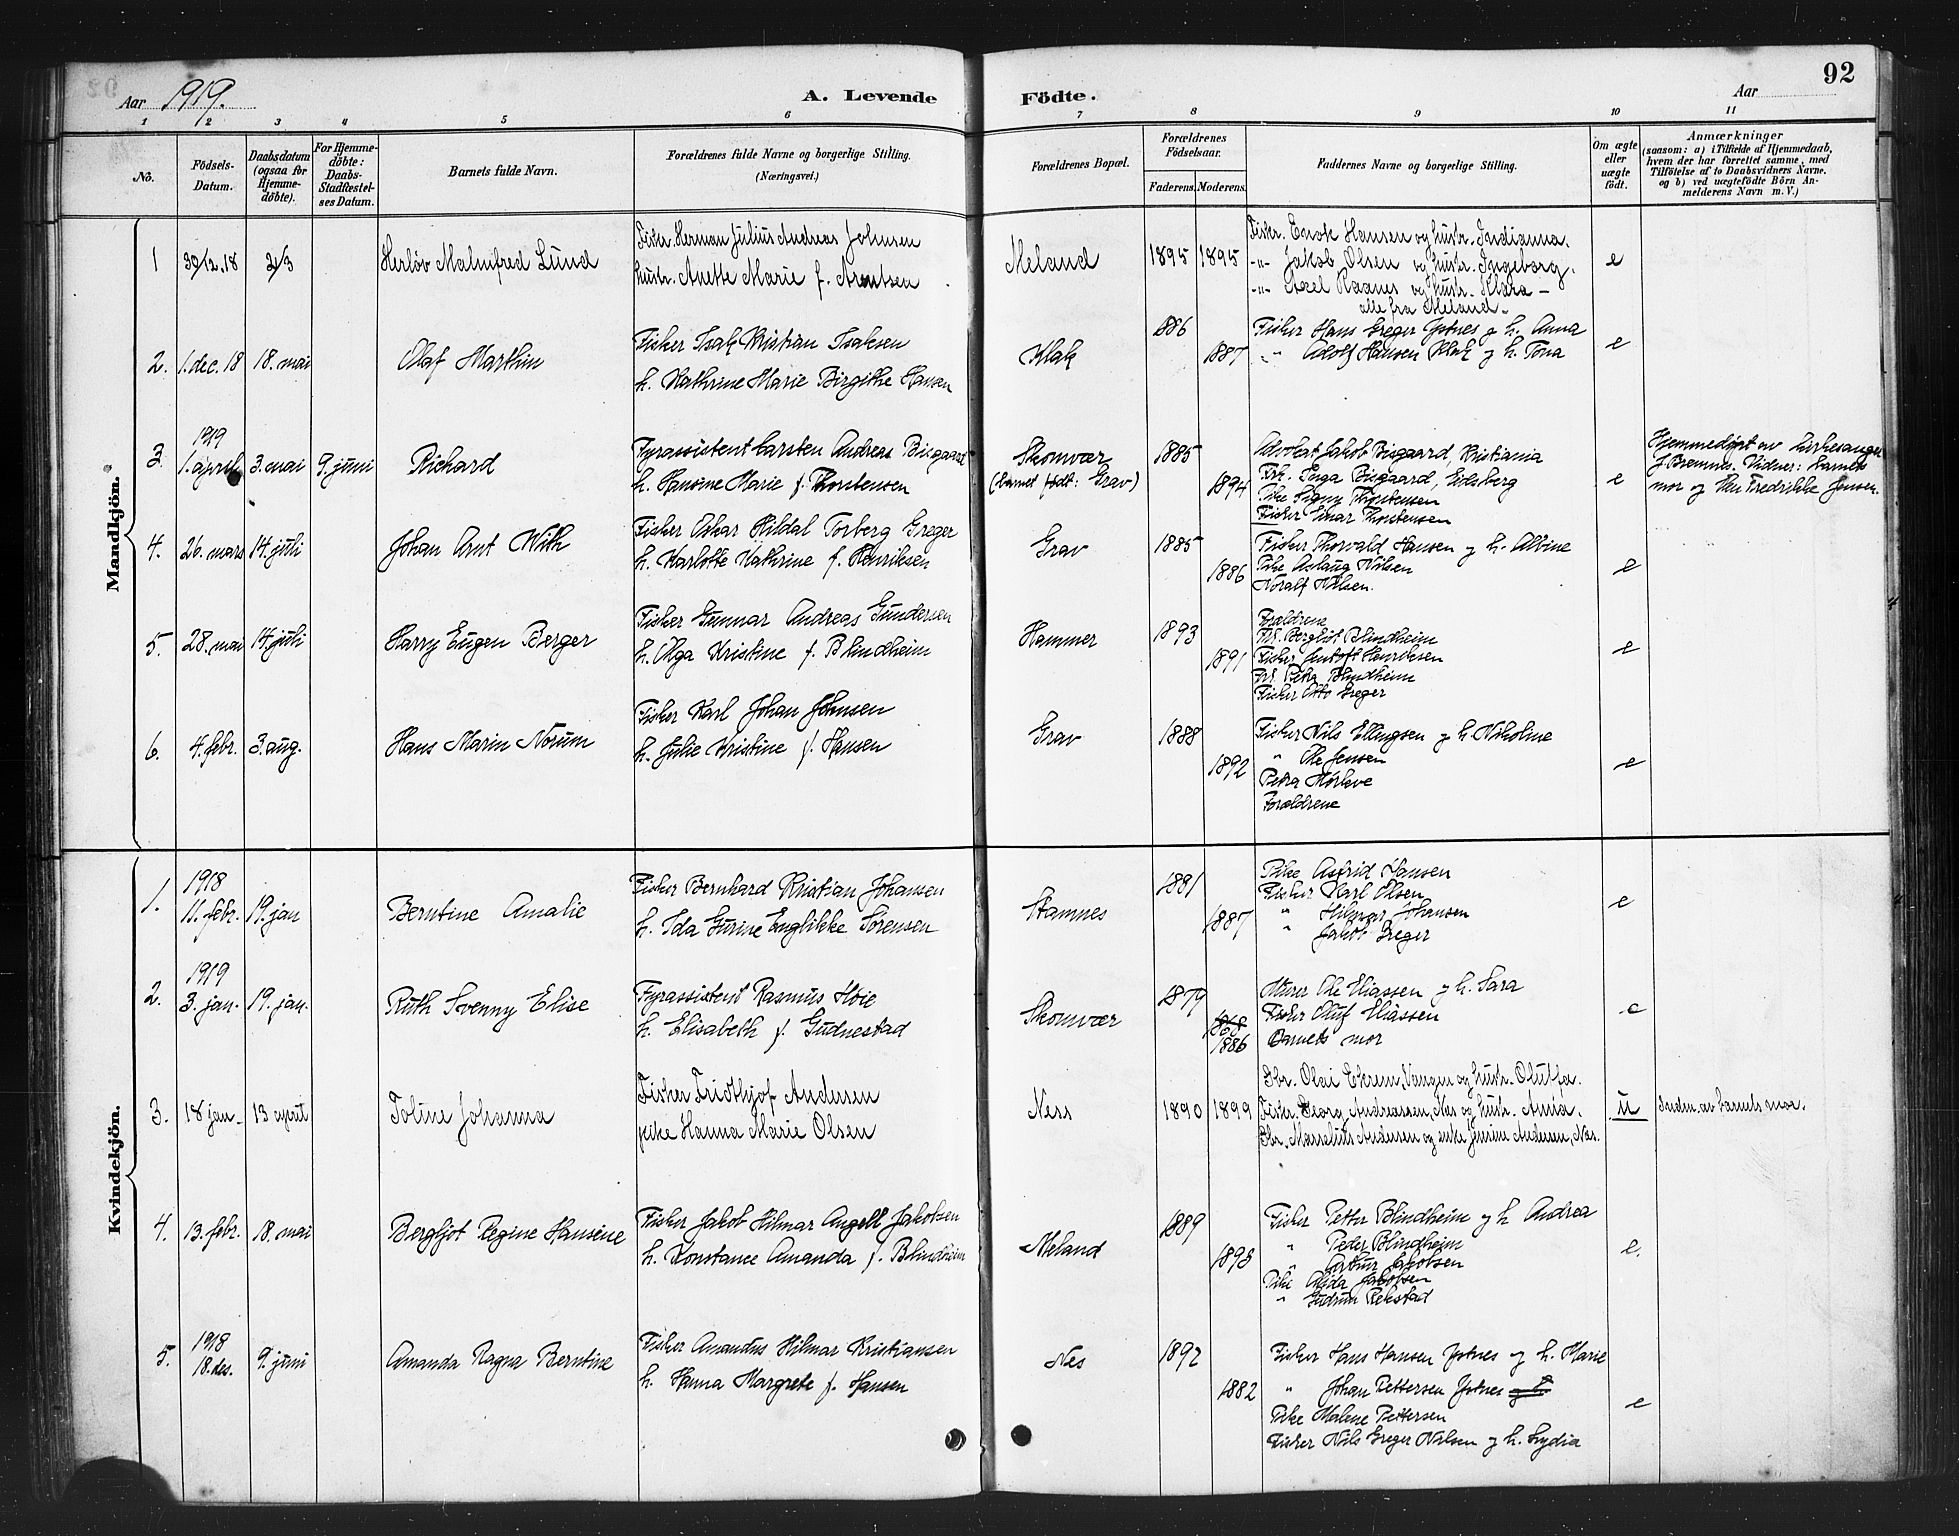 Aar 1919.
A. Levende Födte.
Aar
92
1 2 3 4 5 6 7 8 9 10 11
No.
Födsels-Datum.
Daabsdatum (ogsaa for Hjemme-döbte).
For Hjemme-döbte: Daabs-Stadfæstelses Datum.
Barnets fulde Navn.
Forældrenes fulde Navne og borgerlige Stilling. (Næringsvei.)
Forældrenes Bopæl.
Forældrenes Födselsaar.
Faderens. Moderens.
Faddernes Navne og borgerlige Stilling.
Om ægte eller uægte födt.
Anmærkninger
(saasom: a) i Tilfælde af Hjemmedaab, hvem der har forrettet samme, med Tilföielse af to Daabsvidners Navne. og b) ved uægtefödte Börn Anmelderens Navn m. V.)
Mandkjön.
1 30/12.18 2/3 Herlöv Malmfred Lund
Fisker. Herman Julius Andreas Johnsen
hustr. Anette Marie f. Arentsen
Meland 1895 1895
Fisker. Enok Hansen og hustr. Indianna.
-"- Jakob Olsen og hustr. Ingeborg.
-"- Axel Raanes og hustr. Klara -
alle fra Meland.
e
2. 1. dec. 18 18. mai Olaf Marthin
Fisker Isak Kristian Isaksen
h. Kathrine Marie Birgithe Hansen
Klak 1886 1887
Fisker Hans Greger Ystnes og h. Anna
" Adolf Hansen Klak og h. Tona
e
3. 1919 1. april 3. mai 9. juni Richard
Fyrassistent Carsten Andreas Bisgaard
h. Hansine Marie f. Thorstensen
Skomvær (barnet födt: Grav) 1885 1894
Advokat Jakob Bisgaard, Kristiania
Frk. Inga Bisgaard, Eidsberg
Pike Signy Thorstensen
Fisker Einar Thorstensen
e
Hjemmedöpt av kirkesanger
J. Bremnes. Vidner: barnets
mor og Fredrikke Jensen.
4. 26. mars 14. juli Johan Arnt With
Fisker Oskar Hildal Torberg Greger
h. Karlotte Kathrine f. Henriksen
Grav 1885 1886
Fisker Thorvald Hansen og h. Albine
Pike Aslaug Nilsen
Noralf Nilsen.
e
5. 28. mai 14. juli Harry Eugen Berger
Fisker Gunnar Andreas Gundersen
h. Olga Kristine f. Blindheim
Hammer 1893 1891
Forældrene
Frk. Borghöt Blindheim
Fisker Jentoft Henriksen
Frk. Petra Blindheim
Fisker Otto Greger
e
6. 4. febr. 3. aug. Hans Marin Norum
Fisker Karl Johan Johnsen
h. Julie Kristine f. Hansen
Grav 1888 1892
Fisker Nils Ellingsen og h. Nikoline
" Ole Jensen
Petra
Forældrene
e
Kvindekjön.
1. 1918 11. febr. 19. jan Berntine Amalie
Fisker Bernhard Kristian Johansen
h. Ida Gurine Englikke Sörensen
Stamnes 1881 1887
Pike Astrid Hansen
Fisker Karl Olsen
" Hilmar Johansen
" Jakob Greger
e
2. 1919 3. jan. 19. jan. Ruth Svenny Elise
Fyrassistent Rasmus Höie
h. Elisabeth f. Gudnestad
Skomvær 1879 1868 1886
Murer Ole Eliassen og h. Sara
Fisker Eliassen
Barnets mor
e
3. 18 jan. 13 april Toline Johanna
Fisker Fridthjof Andersen
pike Hanna Marie Olsen
Ness 1890 1899
Gbr. Olai Ekrem, Vangen og hustr. Oluffa.
Fisker. Georg Andreassen, Nes og hustr. Anna.
Gbr. Marselius Andersen og enke Jenine Andersen, Nes.
u
Inden. av barnets mor.
4. 13. febr. 18. mai Bergljot Regine Hansine
Fisker Jakob Hilmar Angell Jakobsen
h. Konstance Amanda f. Blindheim
Meland 1889 1898
Fisker Petter Blindheim og h Andrea
" Peder Blindheim
" Artur Jakobsen
Pike Alida Jakobsen
" Gudrun Rekstad
e.
5. 1918 18. des. 9. juni Amanda Ragna Berntine
Fisker Amandus Hilmar Kristiansen
h. Hanna Margrete f. Hansen
Nes 1892 1882
Fisker Hans Hansen Ystnes og h. Marie
" Johan Pettersen Ystnes og h
Pike Malene Pettersen
Fisker Nils Greger Nilsen og h. Lydia
e